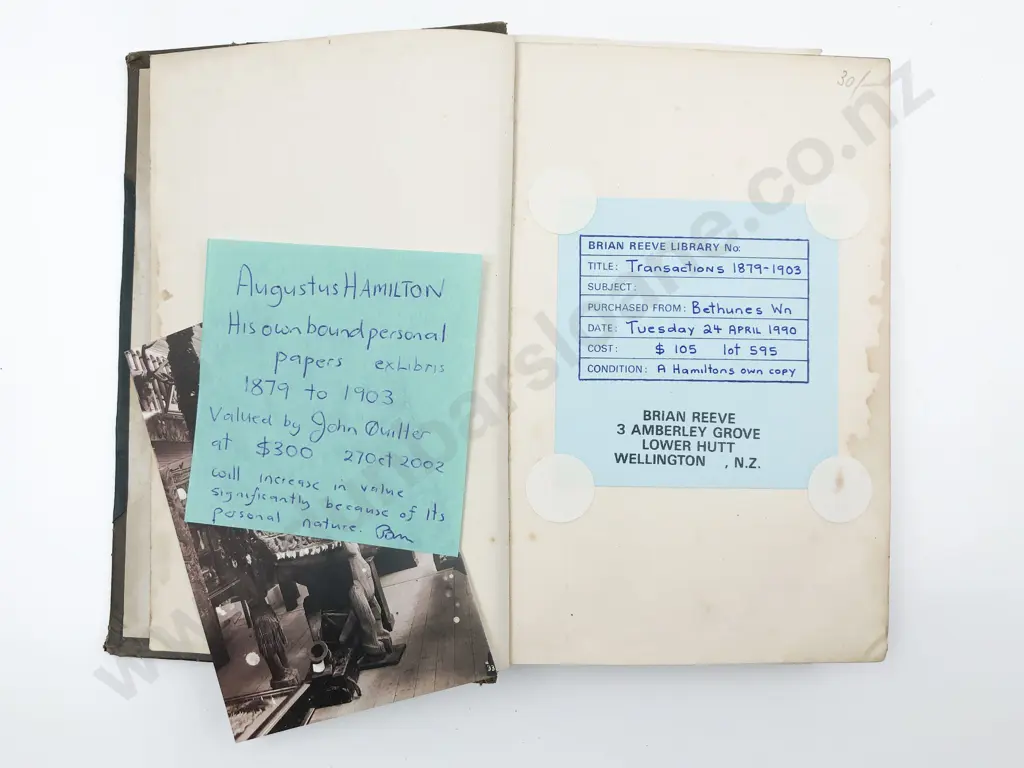 Augustus HAMILTON
His own bound personal
papers exLibris
1879 to 1903
Valued by John Quilter
at $300 27 Oct 2002
will increase in value
significantly because of its
personal nature.
30/-
BRIAN REEVE LIBRARY No:
TITLE: Transactions 1879-1903
SUBJECT:
PURCHASED FROM: Bethunes Wn
DATE: Tuesday 24 APRIL 1990
COST: $ 105 lot 595
CONDITION: A Hamiltons own copy
BRIAN REEVE
3 AMBERLEY GROVE
LOWER HUTT
WELLINGTON , N.Z.